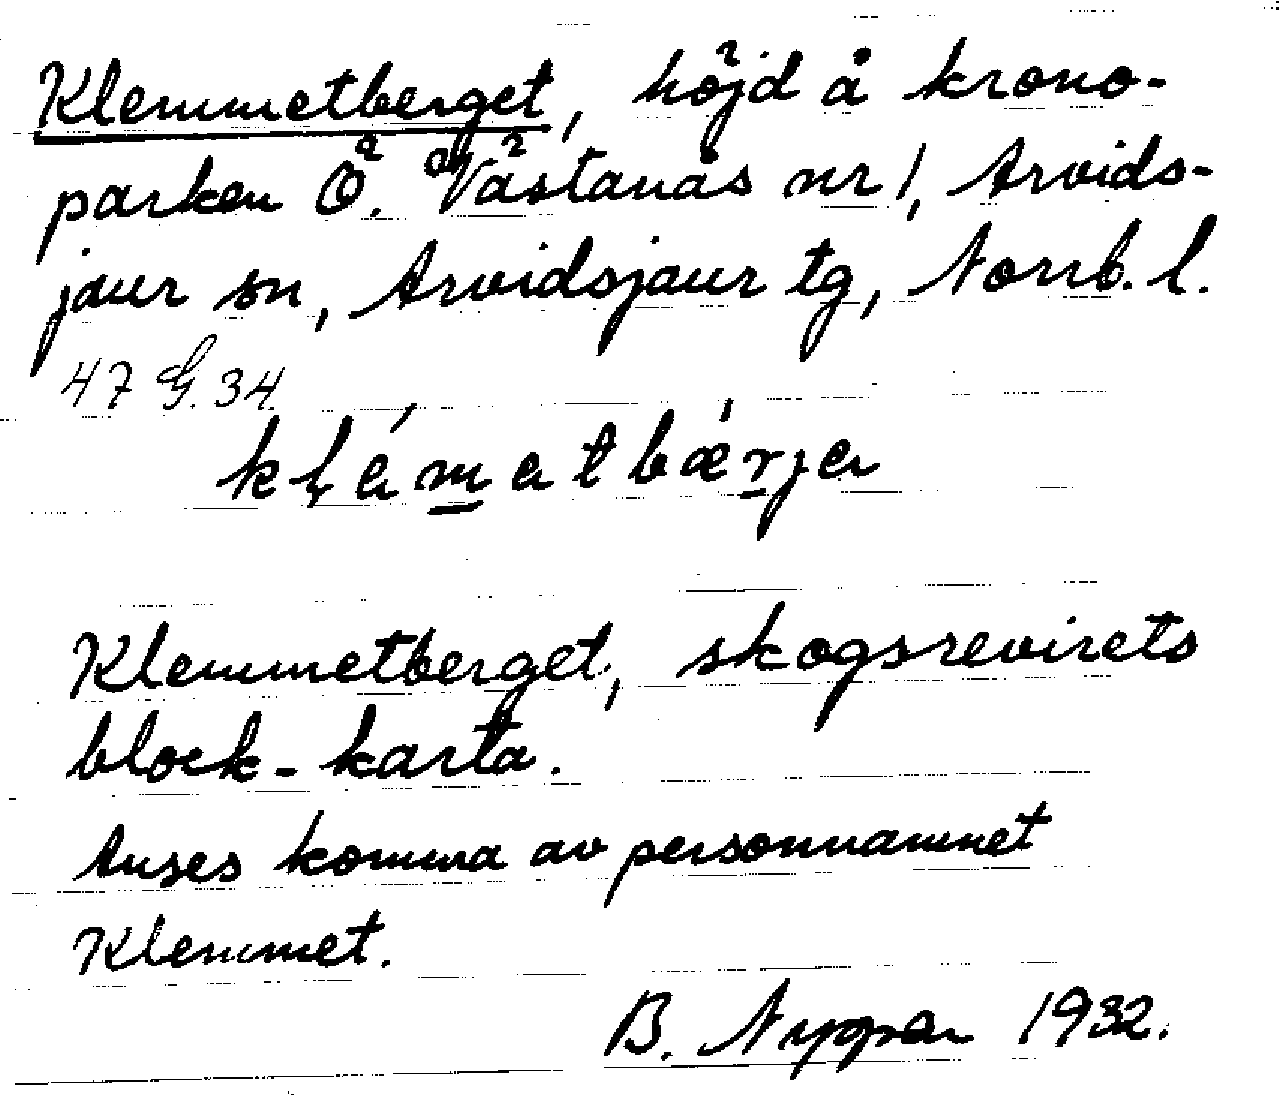 Klemmetberget, höjd å krono-
parken Ö. Västanås nr 1, Arvids-
jaur sn, Arvidsjaur tg, Norrb. l.
47 G. 34.
Klemmetberget, skogsrevirets
block-karta.
Anses komma av personnamnet
Klemmet.
B. Nyppa 1932.